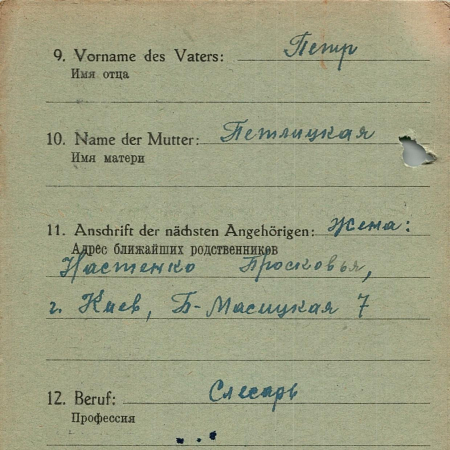 9. Vorname des Vaters: Петр
Имя отца
10. Name der Mutter: Петлицкая
Имя матери
11. Anschrift der nächsten Angehörigen: жена:
Адрес ближайших родственников
Настенко Просковья,
г. Киев, Б-Масицкая 7
12. Beruf: Слесарь
Профессия